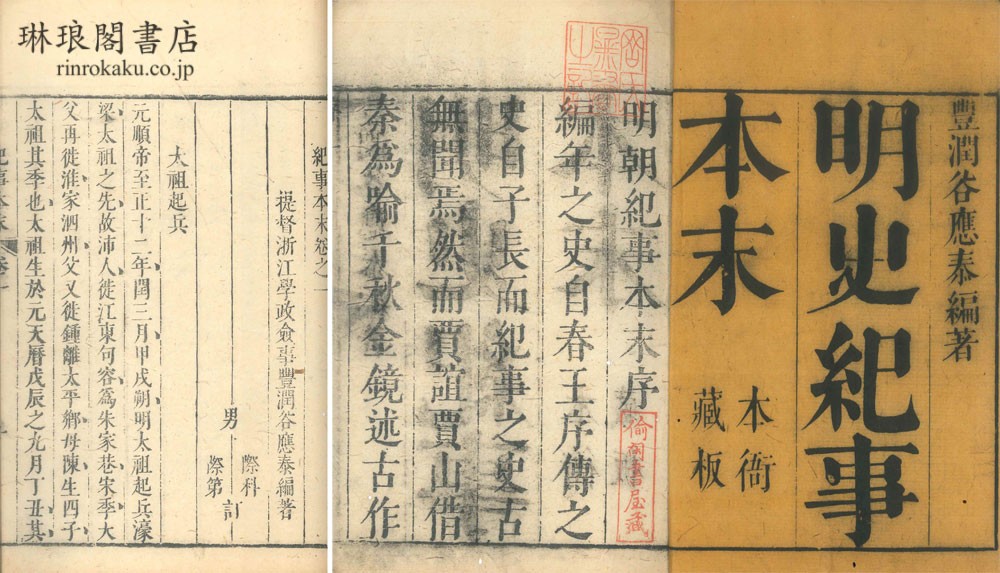 豐潤谷應泰編著
明史紀事
本末
本衙
藏板
明朝紀事本末序
編年之史自春王序傳之
史自子長而紀事之史古
無聞焉然而賈誼賈山借
秦為喻千秋金鏡述古作
書屋藏
琳琅閣書店
rinrokaku.co.jp
紀事本末卷之一
提督浙江學政僉事豐潤谷應泰編著
男 際科 際第 訂
太祖起兵
元順帝至正十二年閏三月甲戌朔明太祖起兵濠
梁太祖之先故沛人徙江東句容為朱家巷宋季大
父再徙淮家泗州父又徙鍾離太平鄉母陳生四子
太祖其季也太祖生於元天曆戊辰之九月丁丑其
紀事本末 卷一